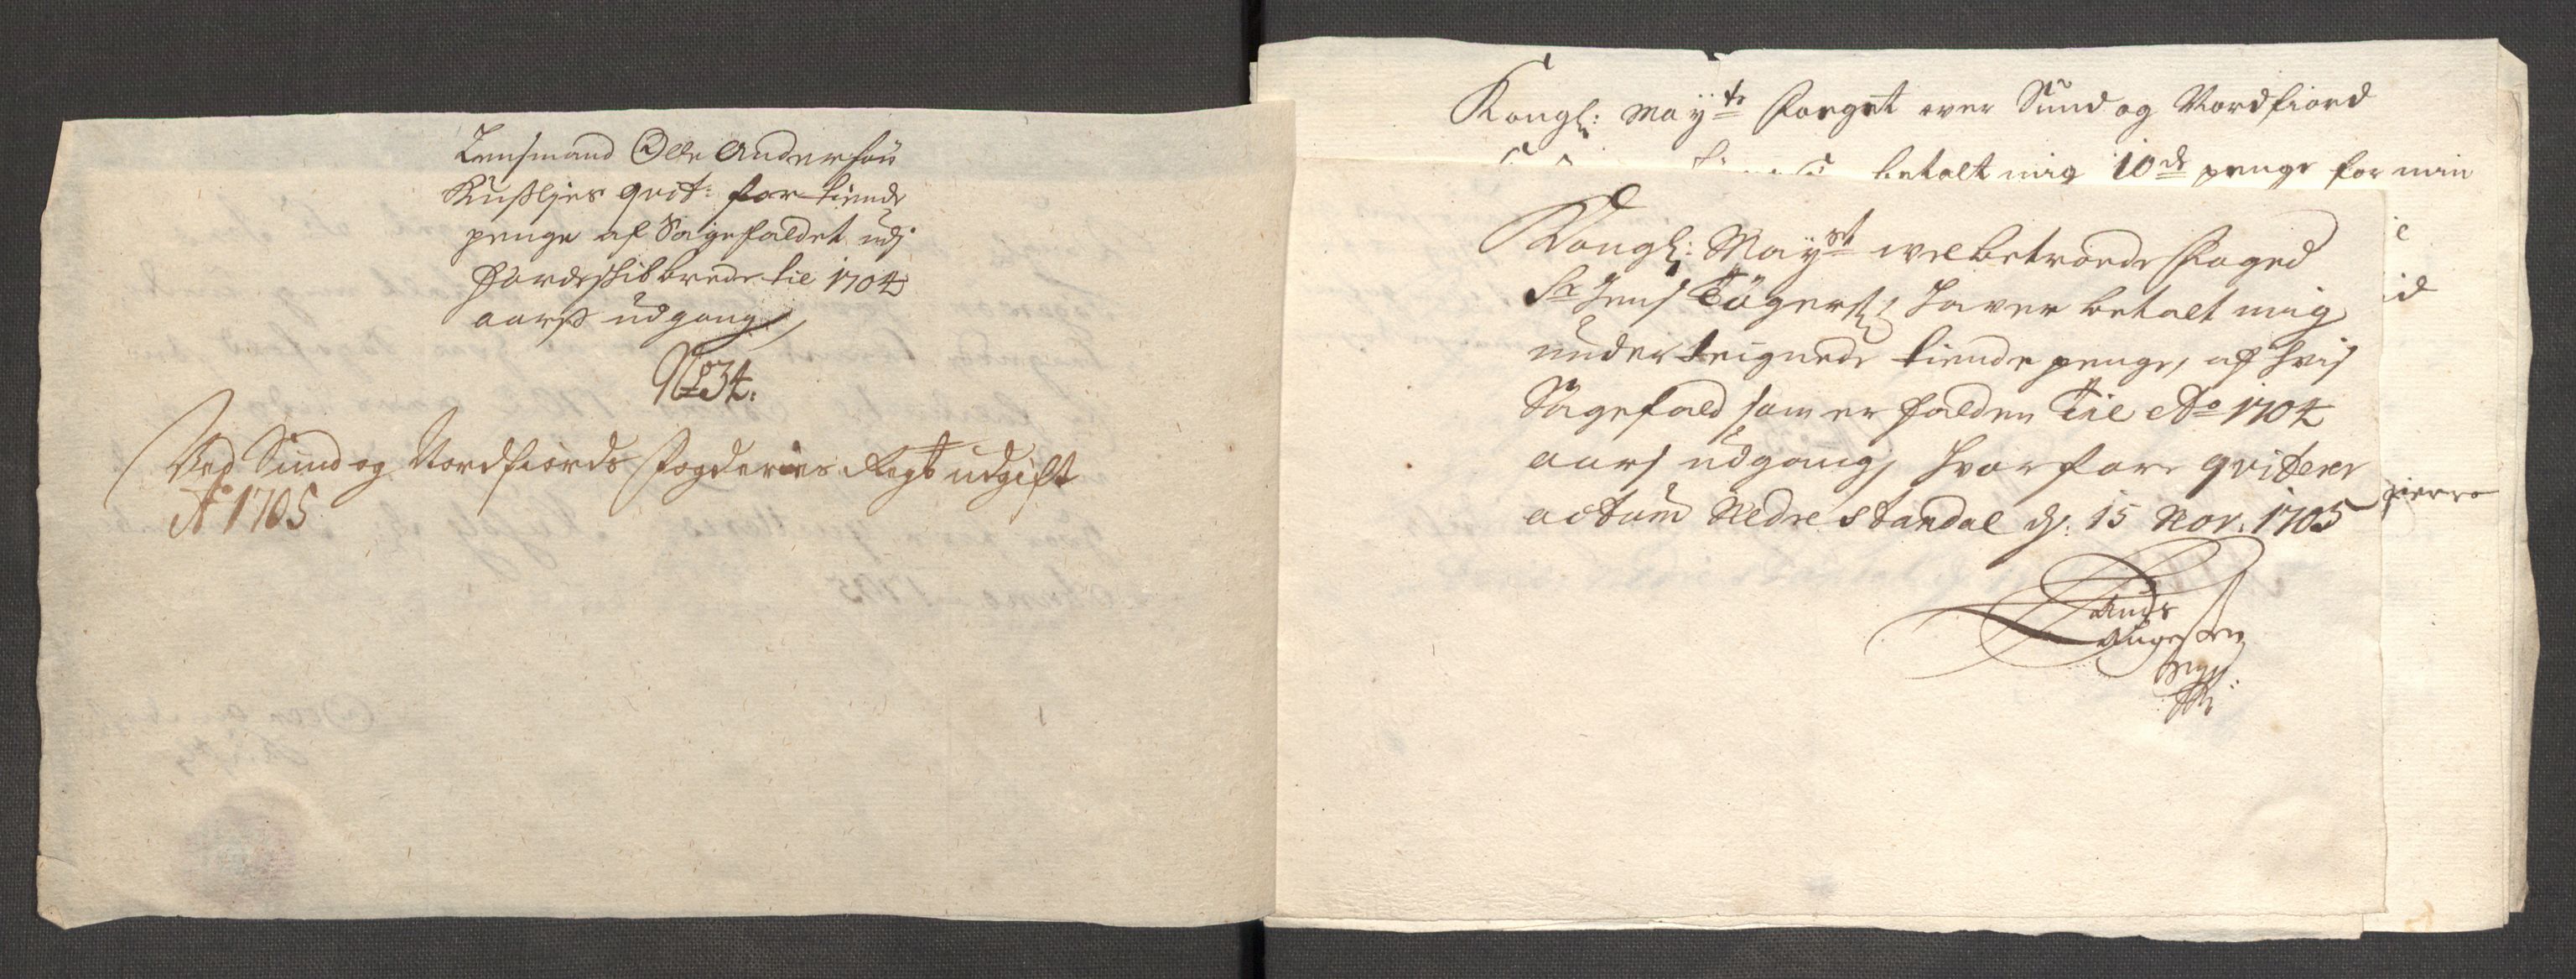 Lensmand Olle Andersøn
Kußljes qvit: for tiende
penge af Sagefaldet udj
Hardeskibbrede til 1704
aarß udgang
No 34.
Ved Sund og Nordfiords Fogderies Regsk udgift
Ao 1705
Kongl: Mayts Foeget over Sund og Nordfiord
betalt mig 10de penge for min
Kongl: Mayst welbetroede Foged
Sr Jens Tøgers: haver betalt mig
underteignede tiende penge, af hvis
Sagefald som er falden Til Ao 1704
aars udgang, hvorfore qviterer
actum Nedre Standal d: 15 Nov: 1705
Anders